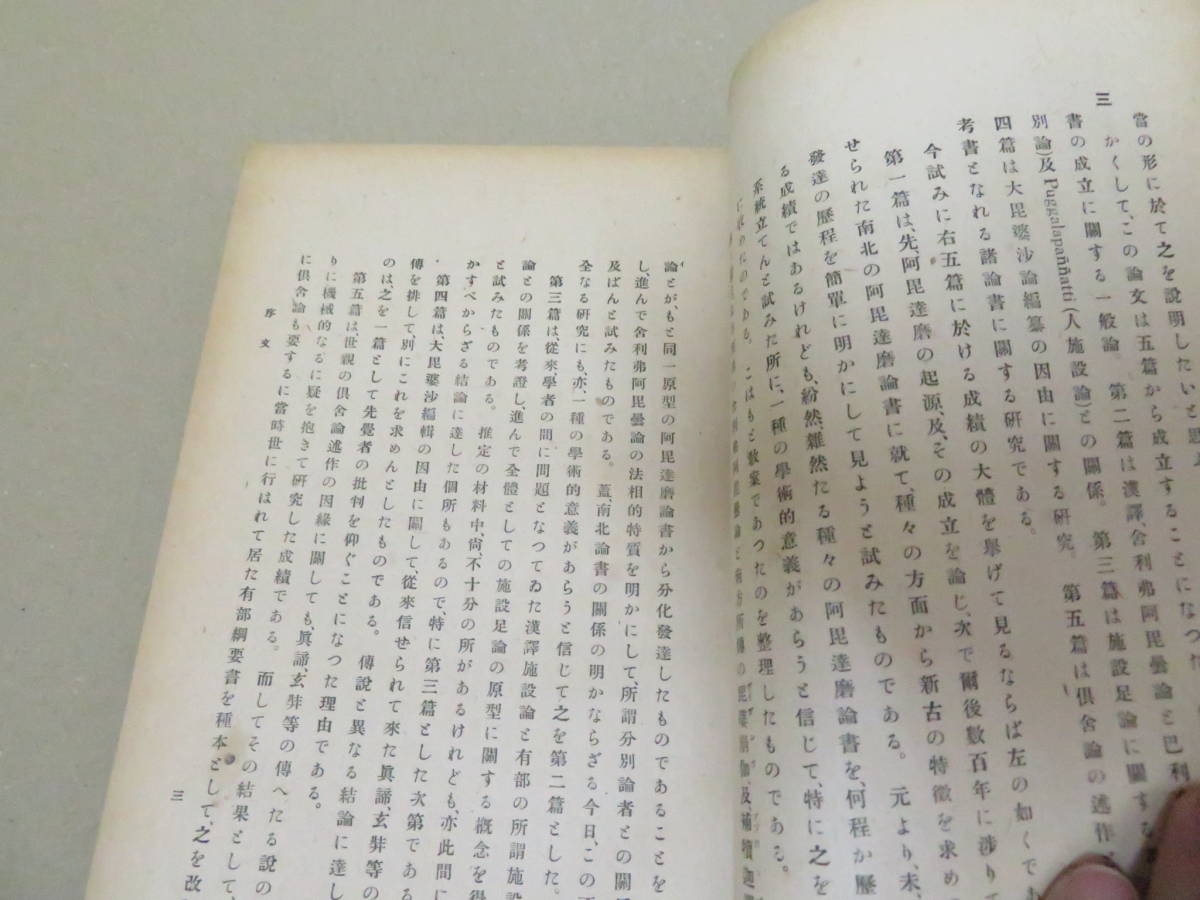 當の形に於て之を説明したいと思
三
かくして、この論文は五篇から成立することになつた
書の成立に關する一般論　第二篇は漢譯、舍利弗阿毘曇論と巴利
別論)及Puggalapaññatti(人施設論)との關係。　第三篇は施設足論に關する
四篇は大毘婆沙論編纂の因由に關する研究。　第五篇は俱舍論の述作
考書となれる諸論書に關する研究である。
今試みに右五篇に於ける成績の大體を擧げて見るならば左の如くで
第一篇は、先、阿毘達磨の起源、及、その成立を論じ、次で爾後數百年に渉りて
せられた南北の阿毘達磨論書に就て、種々の方面から新古の特徴を求め
發達の歷程を簡單に明かにして見ようと試みたものである。　元より、未、
る成績ではあるけれども、紛然、雜然たる種々の阿毘達磨論書を、何程か歷
系統立てんと試みた所に、一種の學術的意義があらうと信じて、特に之を
に收めたのである。　こはもと教案であつたのを整理したものである。
論とが、もと同一原型の阿毘達磨論書から分化發達したものであることを
し、進んで舍利弗阿毘曇論の法相的特質を明かにして、所謂分別論者との關
及ばんと試みたものである。　蓋、南北論書の關係の明かならざる今日、この
全なる研究にも、亦、一種の學術的意義があらうと信じて之を第二篇とした。
第三篇は、從來、學者の間に問題となつてゐた漢譯施設論と有部の所謂施設
論との關係を考證し、進んで全體としての施設足論の原型に關する概念を得
と試みたものである。　推定の材料中、尙、不十分の所があるけれども、亦此間に
かすべからざる結論に達した個所もあるので、特に第三篇とした次第である
第四篇は、大毘婆沙編輯の因由に關して、從來信せられて來た眞諦玄弉等の
傳を排して、別にこれを求めんとしたものである。　傳説と異なる結論に達し
のは、之を一篇として先覺者の批判を仰ぐことになつた理由である。
第五篇は、世親の俱舍論述作の因緣に關しても、眞諦、玄弉等の傳へたる説の
りに機械的なるに疑を抱きて研究した成績である。　而してその結果として、
に俱舍論も要するに當時世に行はれて居た有部綱要書を種本として、之を改
序文
三